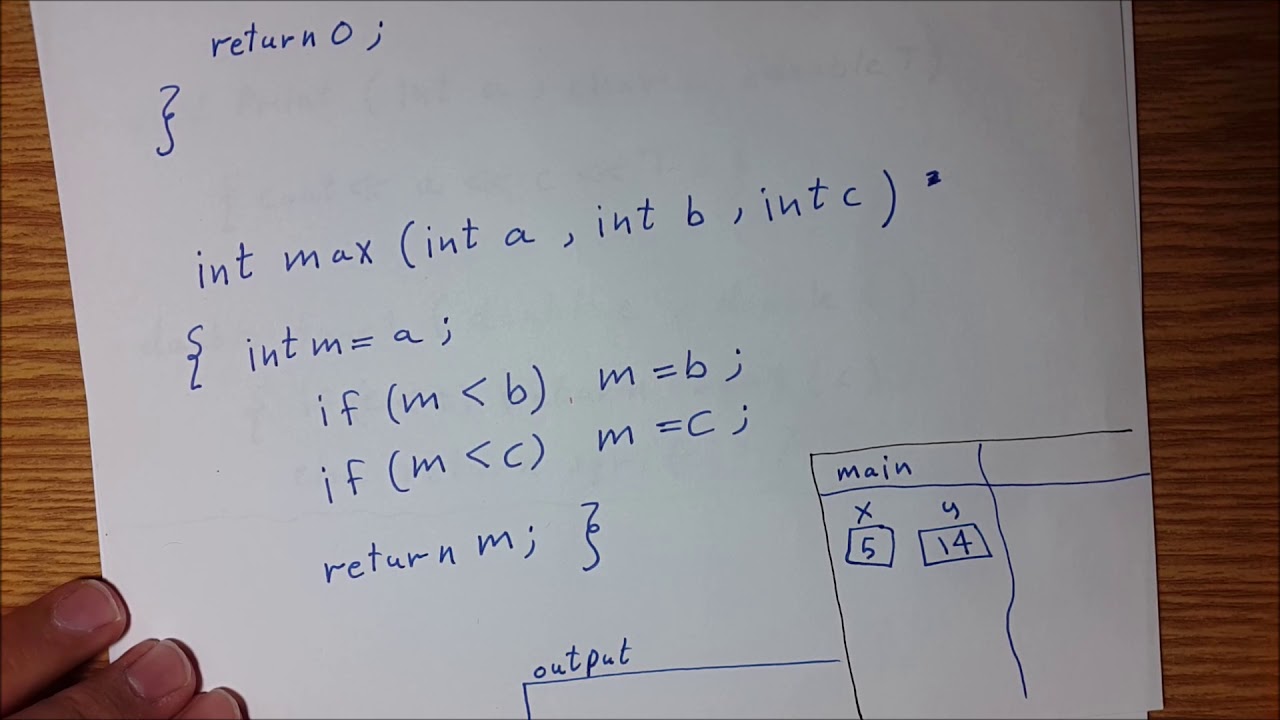 return 0 ;
}
int max (int a , int b , int c )
{ int m = a ;
if (m < b) m = b ;
if (m < c) m = c ;
return m ; }
main
x y
5 14
output